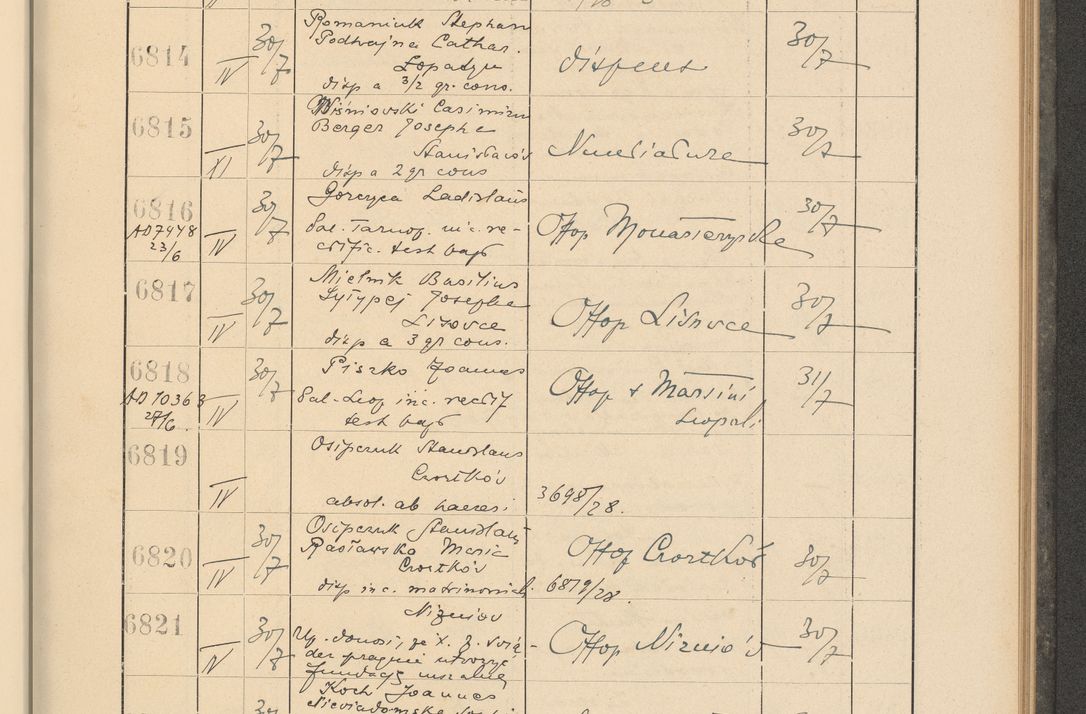 6814 IV 30/7 Romaniuk Stephan
Podhajna Cathar.
Łopatyn
disp a 3/2 gr. cons.
dispens 30/7
6815 XI 30/7 Wiśniowski Casimirus
Berger Josepha
Stanisławów
disp a 2 gr cons
Nuntiatura 30/7
6816
AD 7448
23/6
IV 30/7 Gorzyca Ladislaus
Gal. Tarnop. inc. re-
ctific. test bapt
Offop Monasterzyska 30/7
6817 IV 30/7 Mielnik Basilius
Josepha
Lisovce
disp a 3 gr cons.
Offop Lisovce 30/7
6818
AD 10363
27/6.
IV 30/7 Piszko Joannes
Gal-Leop inc. rectif
test bapt
Offop + Martini
Leopoli
31/7
6819 IV Osipczuk Stanislaus
Czortków
absol. ab haeresi
3698/28.
6820 IV 30/7 Osipczuk Stanislaus
Racławska Maria
Czortków
disp inc. matrimonial.
Offop Czortków
6879/28.
30/7
6821 IV 30/7 Nizniów
donosi, że X.
der pragnie utworzyć
fundację mszalną
Offop Nizniów 30/7
Koch Joannes
Nieviadomska